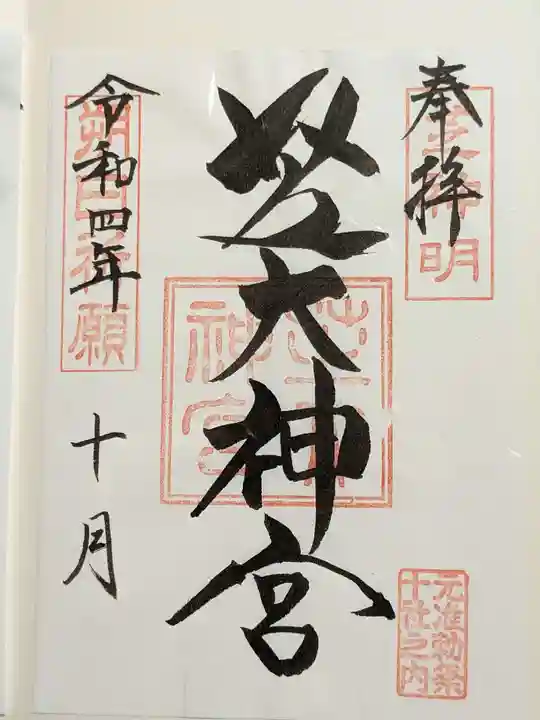 奉拝
芝神明
芝大神宮
芝大
神宮
令和四年
十月
朔日祈願
元准勅祭
十社之内